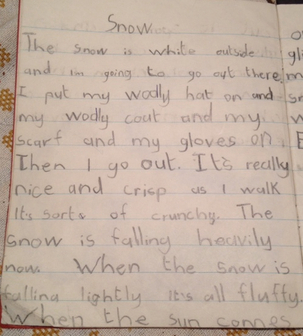 Snow
The snow is white outside
and i'm going to go out there
I put my wodly hat on and
my wodly coat and my
scarf and my gloves on.
Then I go out. It's really
nice and crisp as I walk
It's sorta of crunchy. The
snow is falling heavily
now. When the snow is
falling lightly It's all fluffy.
When the sun comes